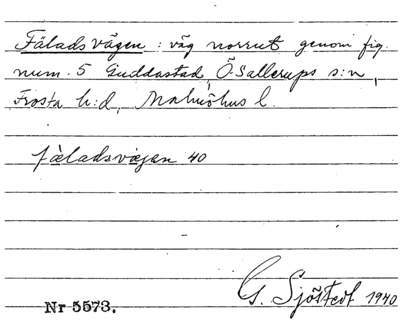 Fäladsvägen : väg norrut genom fig.
num. 5 Guddastad, Ö. Sallerups s:n,
Frosta h:d, Malmöhus l.
fäladsvägan 40
G. Sjöstedt 1940
Nr 5573.